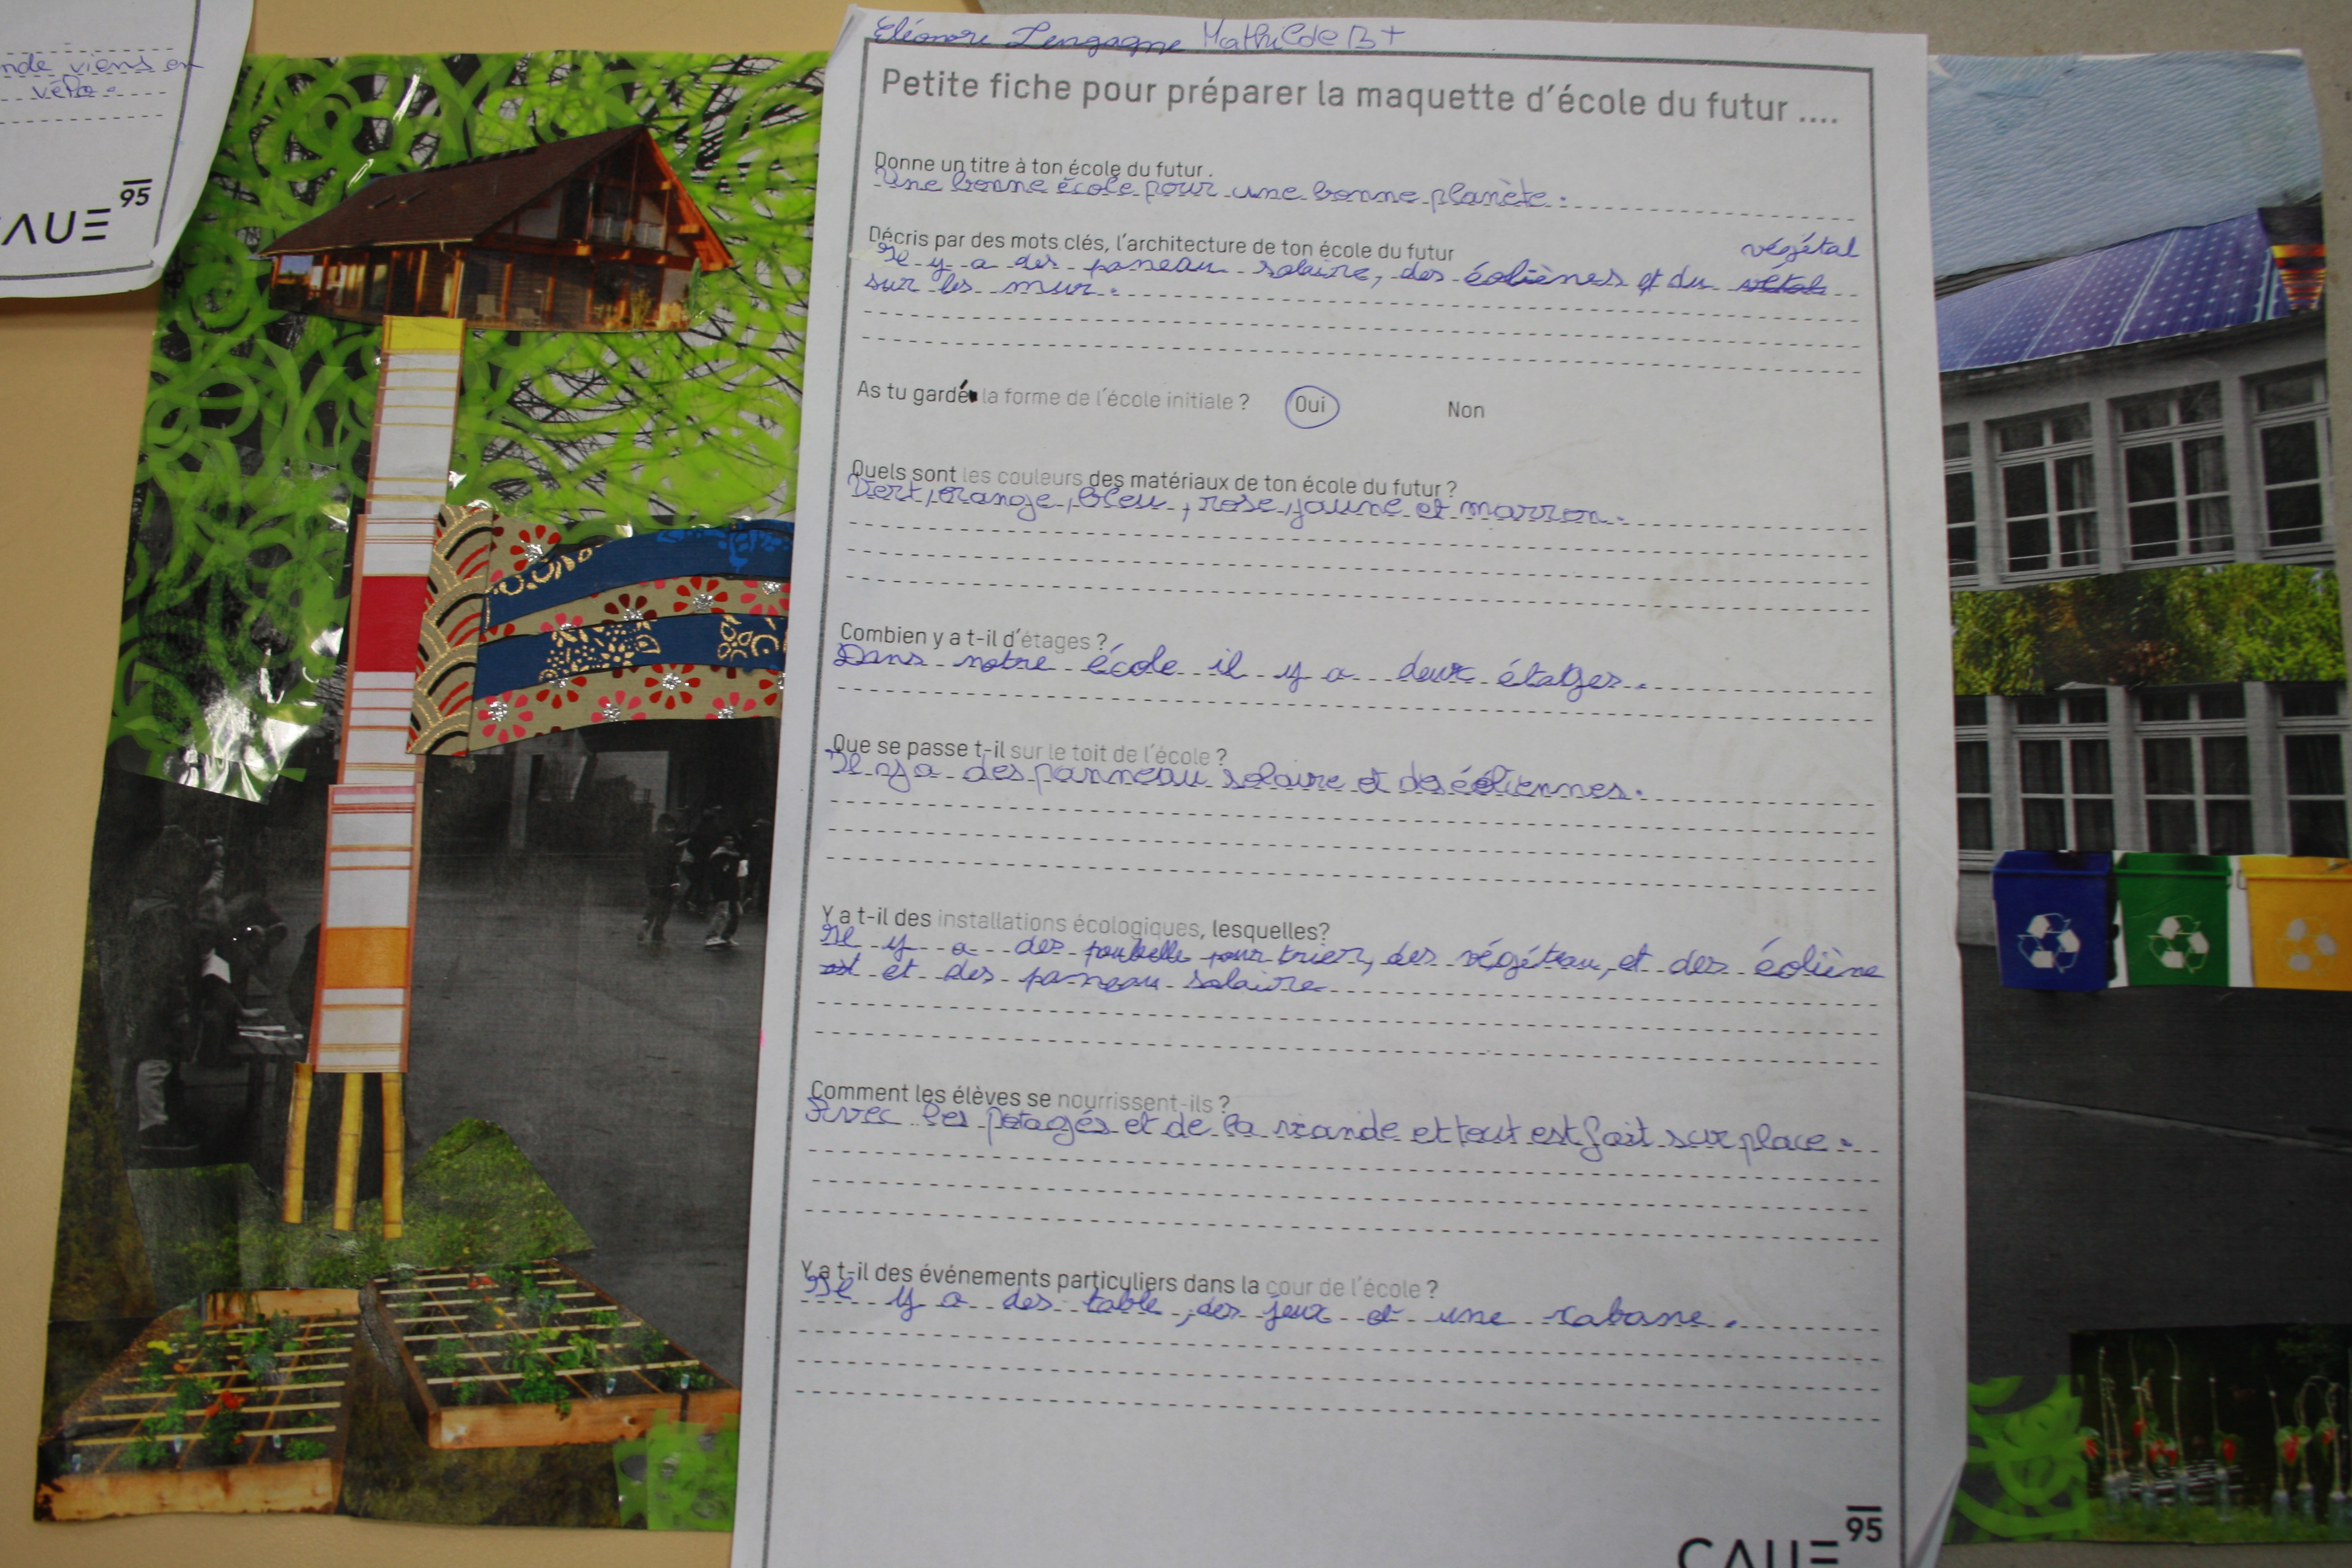 nde viens en
vélo.
CAUE 95
Eléonore Lengagne Mathilde B+
Petite fiche pour préparer la maquette d'école du futur ....
Donne un titre à ton école du futur .
Une bonne école pour une bonne planète.
Décris par des mots clés, l'architecture de ton école du futur
végétal
Il y a des paneau solaire, des éoliènes et du vétal
sur les mur.
As tu gardé la forme de l'école initiale ? Oui Non
Quels sont les couleurs des matériaux de ton école du futur ?
Vert, orange, bleu, rose, jaune et marron.
Combien y a t-il d'étages ?
Dans notre école il y a deux étages.
Que se passe t-il sur le toit de l'école ?
Il y a des panneau solaire et des éoliennes.
Y a t-il des installations écologiques, lesquelles?
Il y a des poubelle pour trier, des végétau, et des éoliène
est et des paneau solaire
Comment les élèves se nourrissent-ils ?
Avec les potagés et de la viande et tout est fait sur place.
Y a t-il des événements particuliers dans la cour de l'école ?
Il y a des table, des jeux et une cabane.
CAUE 95